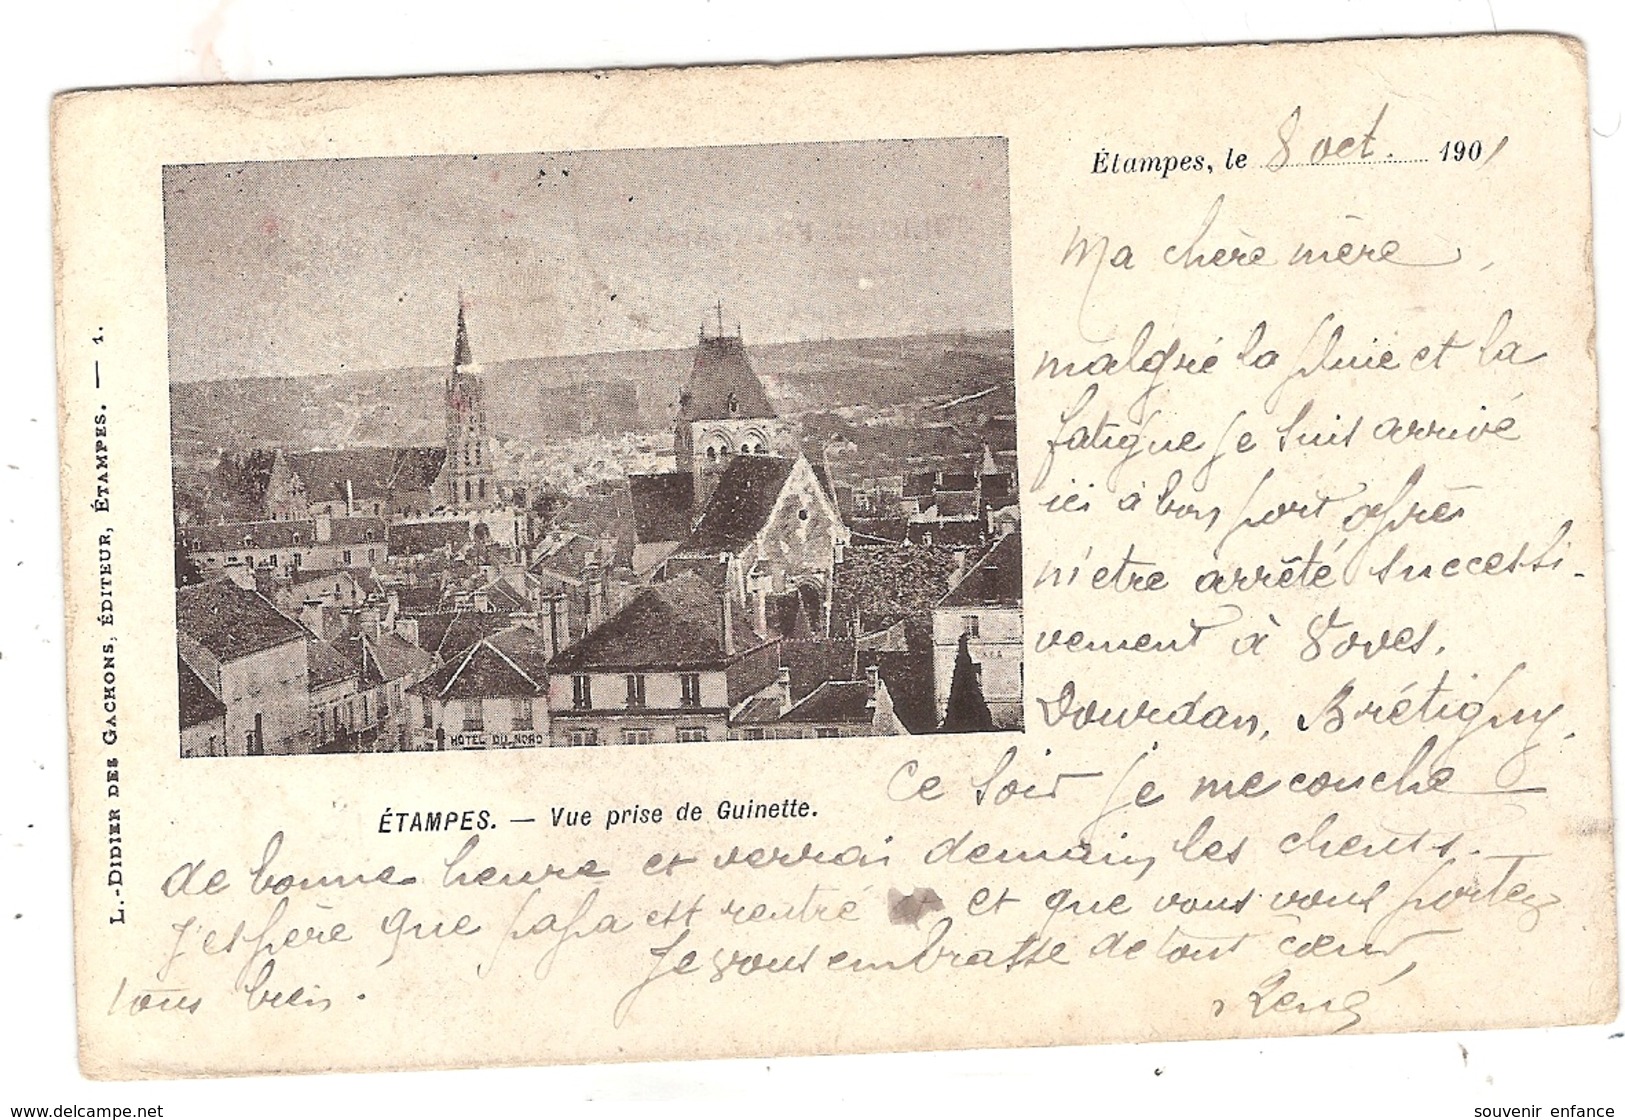 Étampes, le 8 oct. 1901
Ma chère mère,
malgré la pluie et la
fatigue je suis arrivé
ici à bon port après
m'etre arrêté successi-
vement à Voves,
Dourdan, Brétigny.
Ce soir je me couche
de bonne heure et verrai demain les clients.
J'espère que papa est rentré et que vous vous portez
tous bien.
Je vous embrasse de tout cœur,
René
HOTEL DU NORD
ÉTAMPES. — Vue prise de Guinette.
L.-DIDIER DES GACHONS, ÉDITEUR, ÉTAMPES. — 1.
www.delcampe.net
souvenir enfance